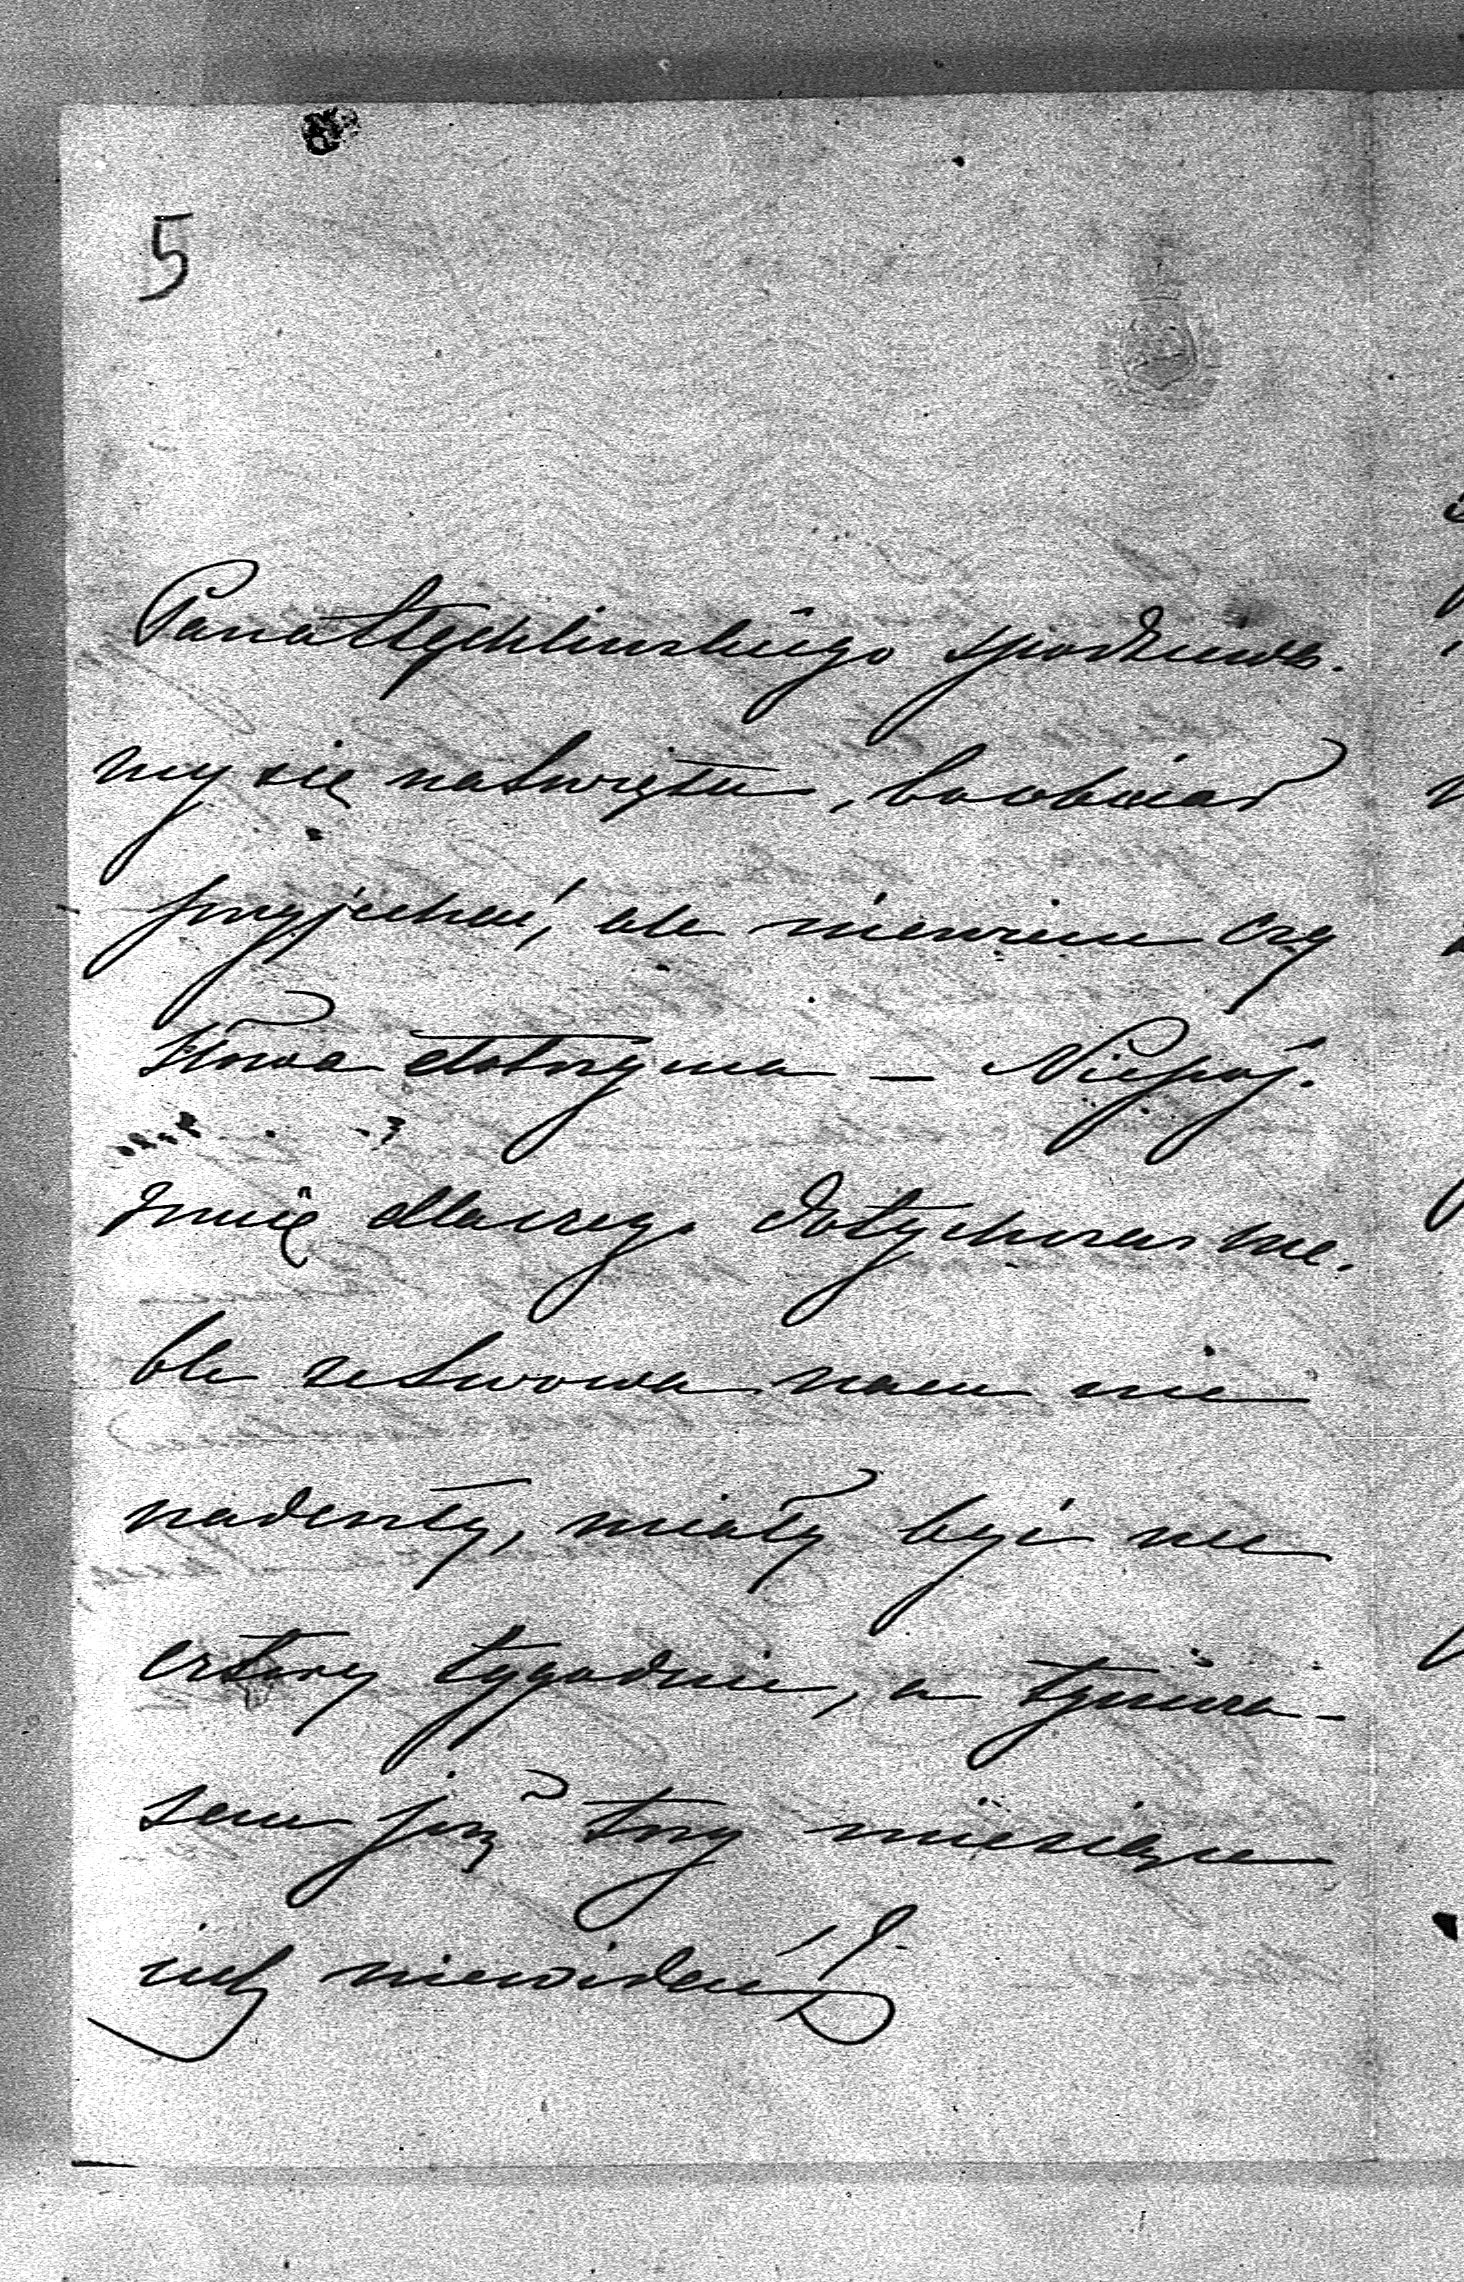 5
Pana Stęchlinskiego spodziewa-
my się naświęta, boobiecał
przyjechać, ale niewiem czy
słowa dotrzyma — Niepoj-
muię dlaczego dotychczas me-
ble zeLwowa nam nie
nadeszły, miały być we
cztery tygodnie, a tymcza-
sem już trzy miesiące
ich niewidać